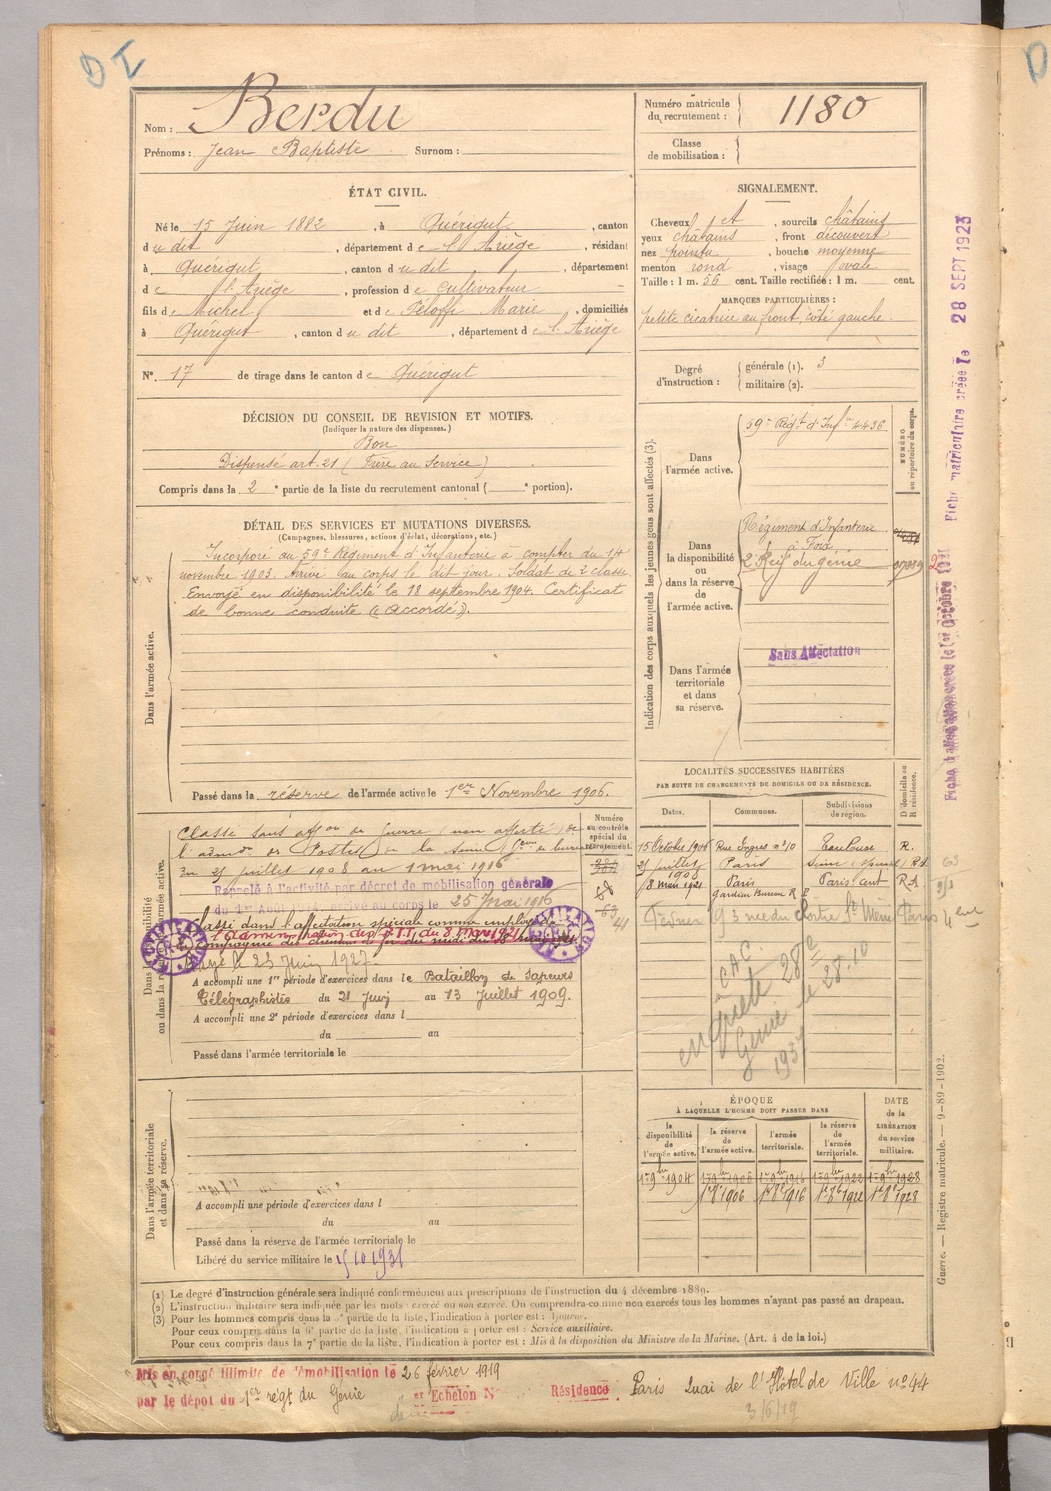 D I
Nom : Berdu
Prénoms : Jean Baptiste Surnom :
Numéro matricule du recrutement : 1180
Classe de mobilisation :
ÉTAT CIVIL.
Né le 15 Juin 1882, à Quérigut, canton
d u dit, département de l'Ariège, résidant
à Quérigut, canton d u dit, département
d e l'Ariège, profession d e Cultivateur
fils d e Michel et d e Péloffi Marie, domiciliés
à Quérigut, canton d u dit, département d e l'Ariège
N° 17 de tirage dans le canton d e Quérigut
SIGNALEMENT.
Cheveux et, sourcils châtains
yeux châtains, front découvert
nez pointu, bouche moyenne
menton rond, visage ovale
Taille : 1 m. 56 cent. Taille rectifiée : 1 m. cent.
MARQUES PARTICULIÈRES :
petite cicatrice au front, côté gauche.
Degré d'instruction : générale (1). 3
militaire (2).
DÉCISION DU CONSEIL DE REVISION ET MOTIFS.
(Indiquer la nature des dispenses.)
Bon
Dispensé art. 21 (Frère au Service)
Compris dans la 2e partie de la liste du recrutement cantonal ( e portion).
DÉTAIL DES SERVICES ET MUTATIONS DIVERSES.
(Campagnes, blessures, actions d'éclat, décorations, etc.)
Dans l'armée active.
Incorporé au 59e Régiment d'Infanterie à compter du 14
novembre 1903. Arrivé au corps le dit jour. Soldat de 2e classe
Envoyé en disponibilité le 18 septembre 1904. Certificat
de bonne conduite "Accordé".
Passé dans la réserve de l'armée active le 1er Novembre 1906.
Indication des corps auxquels les jeunes gens sont affectés (3).
NUMÉRO au répertoire du corps.
Dans l'armée active.
59e Régt d'Infie 4436
Dans la disponibilité ou dans la réserve de l'armée active.
Régiment d'Infanterie
à Foix
2e Régt du génie
Dans l'armée territoriale et dans sa réserve.
Sans Affectation
Fiche matriculaire créée le 28 SEPT 1923
Dans la disponibilité ou dans la réserve de l'armée active.
Numéro au contrôle spécial du recrutement.
Classé sans affon en guerre (non affecté) de
l'admon des Postes de la Seine
du 21 juillet 1908 au 1 mai 1916
Rappelé à l'activité par décret de mobilisation générale
du 1er Août 1914 arrivé au corps le 25 Mai 1916
Classé dans l'affectation spéciale comme employé de
l'administration des P.T.T. du 8 mars 1921
la compagnie des chemins de fer du midi du
Rayé le 23 Juin 1927
A accompli une 1re période d'exercices dans l e Bataillon de Sapeurs
Télégraphistes du 21 Juin au 13 Juillet 1909.
A accompli une 2e période d'exercices dans l
du au
Passé dans l'armée territoriale le
LOCALITÉS SUCCESSIVES HABITÉES
PAR SUITE DE CHANGEMENTS DE DOMICILE OU DE RÉSIDENCE.
Dates. Communes. Subdivisions de région. D domicile ou R résidence.
15 Octobre 1906 Rue Ingres n° 10 Toulouse R.
21 juillet 1908 Paris Seine
8 mai 1921 Paris Paris cent R.D
gardien Bureau R P
C A C
Génie le 28.10
1937
Dans l'armée territoriale et dans sa réserve.
A accompli une période d'exercices dans l
du au
Passé dans la réserve de l'armée territoriale le
Libéré du service militaire le 15 10 1931
ÉPOQUE
À LAQUELLE L'HOMME DOIT PASSER DANS
DATE de la LIBÉRATION du service militaire.
la disponibilité de l'armée active. la réserve de l'armée active. l'armée territoriale. la réserve de l'armée territoriale.
1er 9bre 1904 1er 9bre 1906 1er 9bre 1916 1er 9bre 1922 1er 9bre 1928
1er 8bre 1906 1er 8bre 1916 1er 8bre 1922 1er 8bre 1928
Guerre. — Registre matricule. — 9-89-1902.
(1) Le degré d'instruction générale sera indiqué conformément aux prescriptions de l'instruction du 4 décembre 1889.
(2) L'instruction militaire sera indiquée par les mots : exercé ou non exercé. On comprendra comme non exercés tous les hommes n'ayant pas passé au drapeau.
(3) Pour les hommes compris dans la 5e partie de la liste, l'indication à porter est :
Pour ceux compris dans la 6e partie de la liste, l'indication à porter est : Service auxiliaire.
Pour ceux compris dans la 7e partie de la liste, l'indication à porter est : Mis à la disposition du Ministre de la Marine. (Art. 4 de la loi.)
Mis en congé illimité de démobilisation le 26 février 1919
par le dépôt du 1er régt du Génie Echelon N° Résidence Paris Quai de l'Hôtel de Ville n° 44
3/6/19